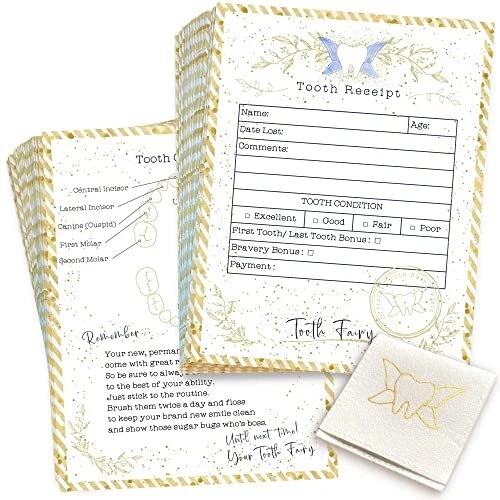 Tooth Receipt
Name:
Age:
Date Lost:
Comments:
TOOTH CONDITION
Excellent
Good
Fair
Poor
First Tooth/Last Tooth Bonus:
Bravery Bonus:
Payment:
Tooth Fairy
Tooth
Central Incisor
Lateral Incisor
Canine (Cuspid)
First Molar
Second Molar
Remember...
Your new, perman
come with great r
So be sure to alway
to the best of your ability.
Just stick to the routine.
Brush them twice a day and floss
to keep your brand new smile clean
and show those sugar bugs who's boss.
Until next time!
Your Tooth Fairy